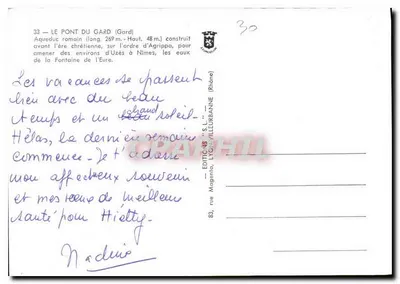 33 - LE PONT DU GARD (Gard)
Aqueduc romain (long. 269 m. - Haut. 48 m.) construit
avant l'ère chrétienne, sur l'ordre d'Agrippa, pour
amener des environs d'Uzès à Nîmes, les eaux
de la Fontaine de l'Eure.
30
Les vacances se passent
bien avec du beau
temps et un chaud soleil -
Hélas, la dernière semaine
commence - Je t'adresse
mon affectueux souvenir
et mes vœux de meilleure
santé pour
Nadine
— EDITIONS "S.L." —
83, rue Magenta, VILLEURBANNE (Rhône)